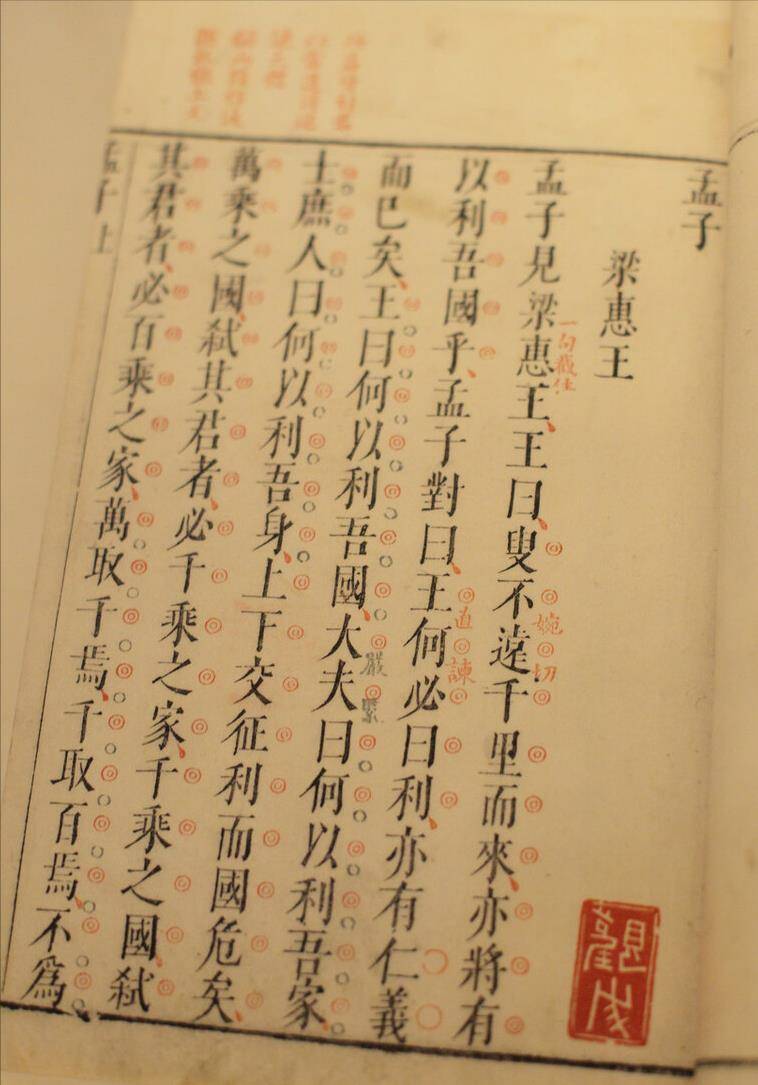 孟子
梁惠王
孟子見梁惠王、王曰、叟不遠千里而來、亦將有
一句截住
婉切
以利吾國乎、孟子對曰、王何必曰利、亦有仁義
直諫
而已矣、王曰何以利吾國、大夫曰何以利吾家、
嚴緊
士庶人曰何以利吾身、上下交征利而國危矣、
萬乘之國、弒其君者、必千乘之家、千乘之國、弒
其君者、必百乘之家、萬取千焉、千取百焉、不為
孟子上